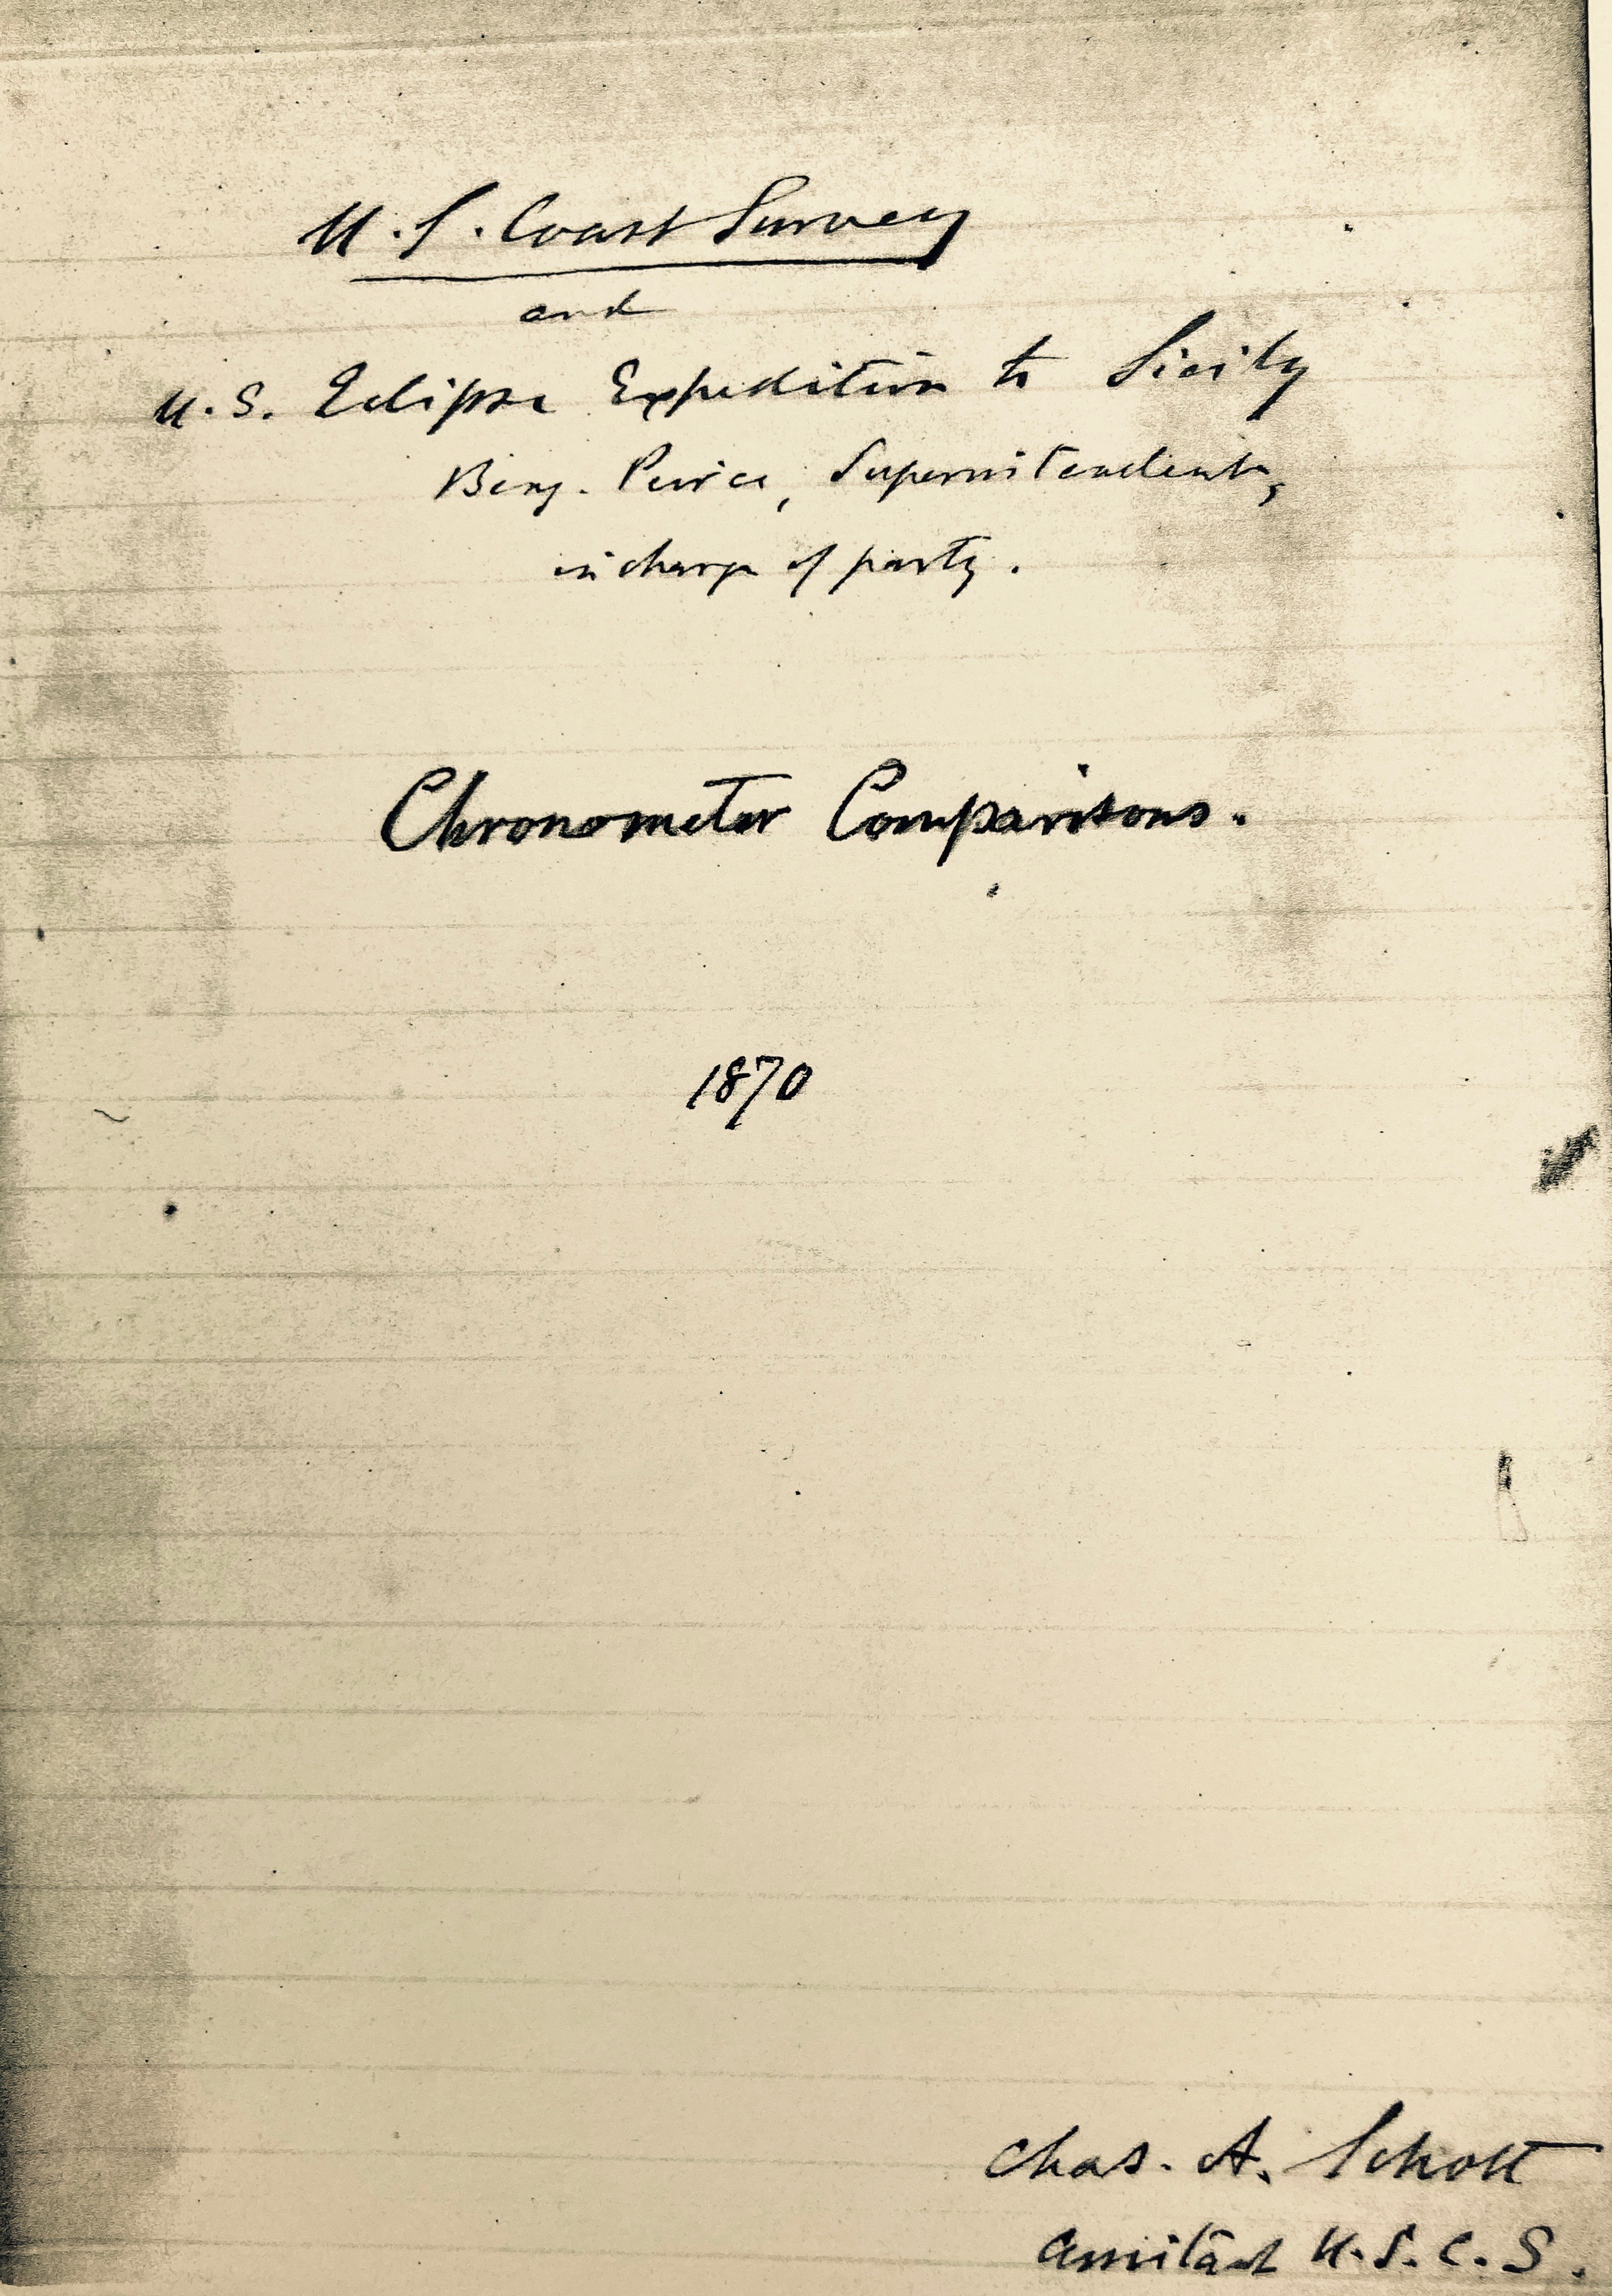 U. S. Coast Survey
and
U. S. Eclipse Expedition to Sicily
Benj. Peirce, Superintendent,
in charge of party.
Chronometer Comparisons.
1870
Chas. A. Schott
Assistant U. S. C. S.